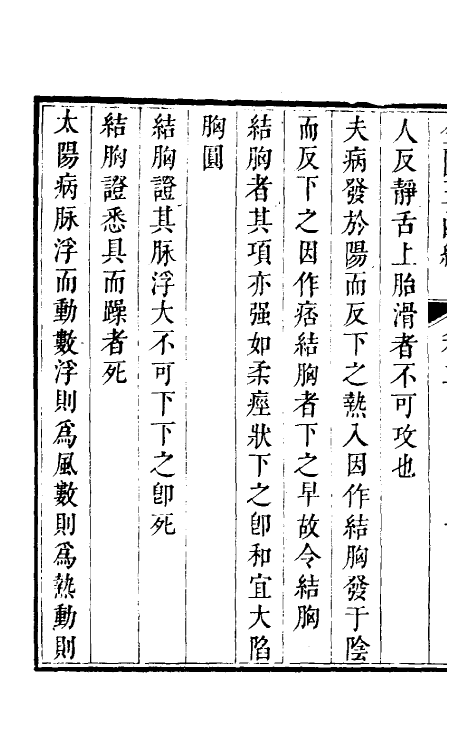 人反靜舌上胎滑者不可攻也
夫病發於陽而反下之熱入因作結胸發于陰
而反下之因作痞結胸者下之早故令結胸
結胸者其項亦强如柔痙狀下之卽和宜大陷
胸圓
結胸證其脉浮大不可下下之卽死
結胸證悉具而躁者死
太陽病脉浮而動數浮則爲風數則爲熱動則